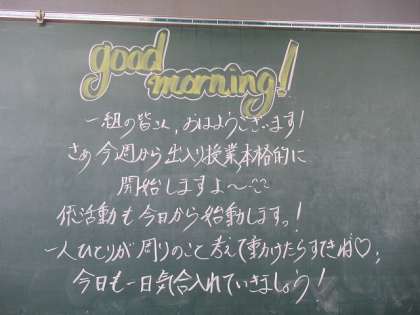 good
morning!
一組の皆さん、おはようございます!
さあ今週から出入り授業本格的に
開始しますよ〜
係活動も今日から始動しますっ!
一人ひとりが周りのこと考えて動けたらすてきね♡;
今日も一日気合入れていきましょう!